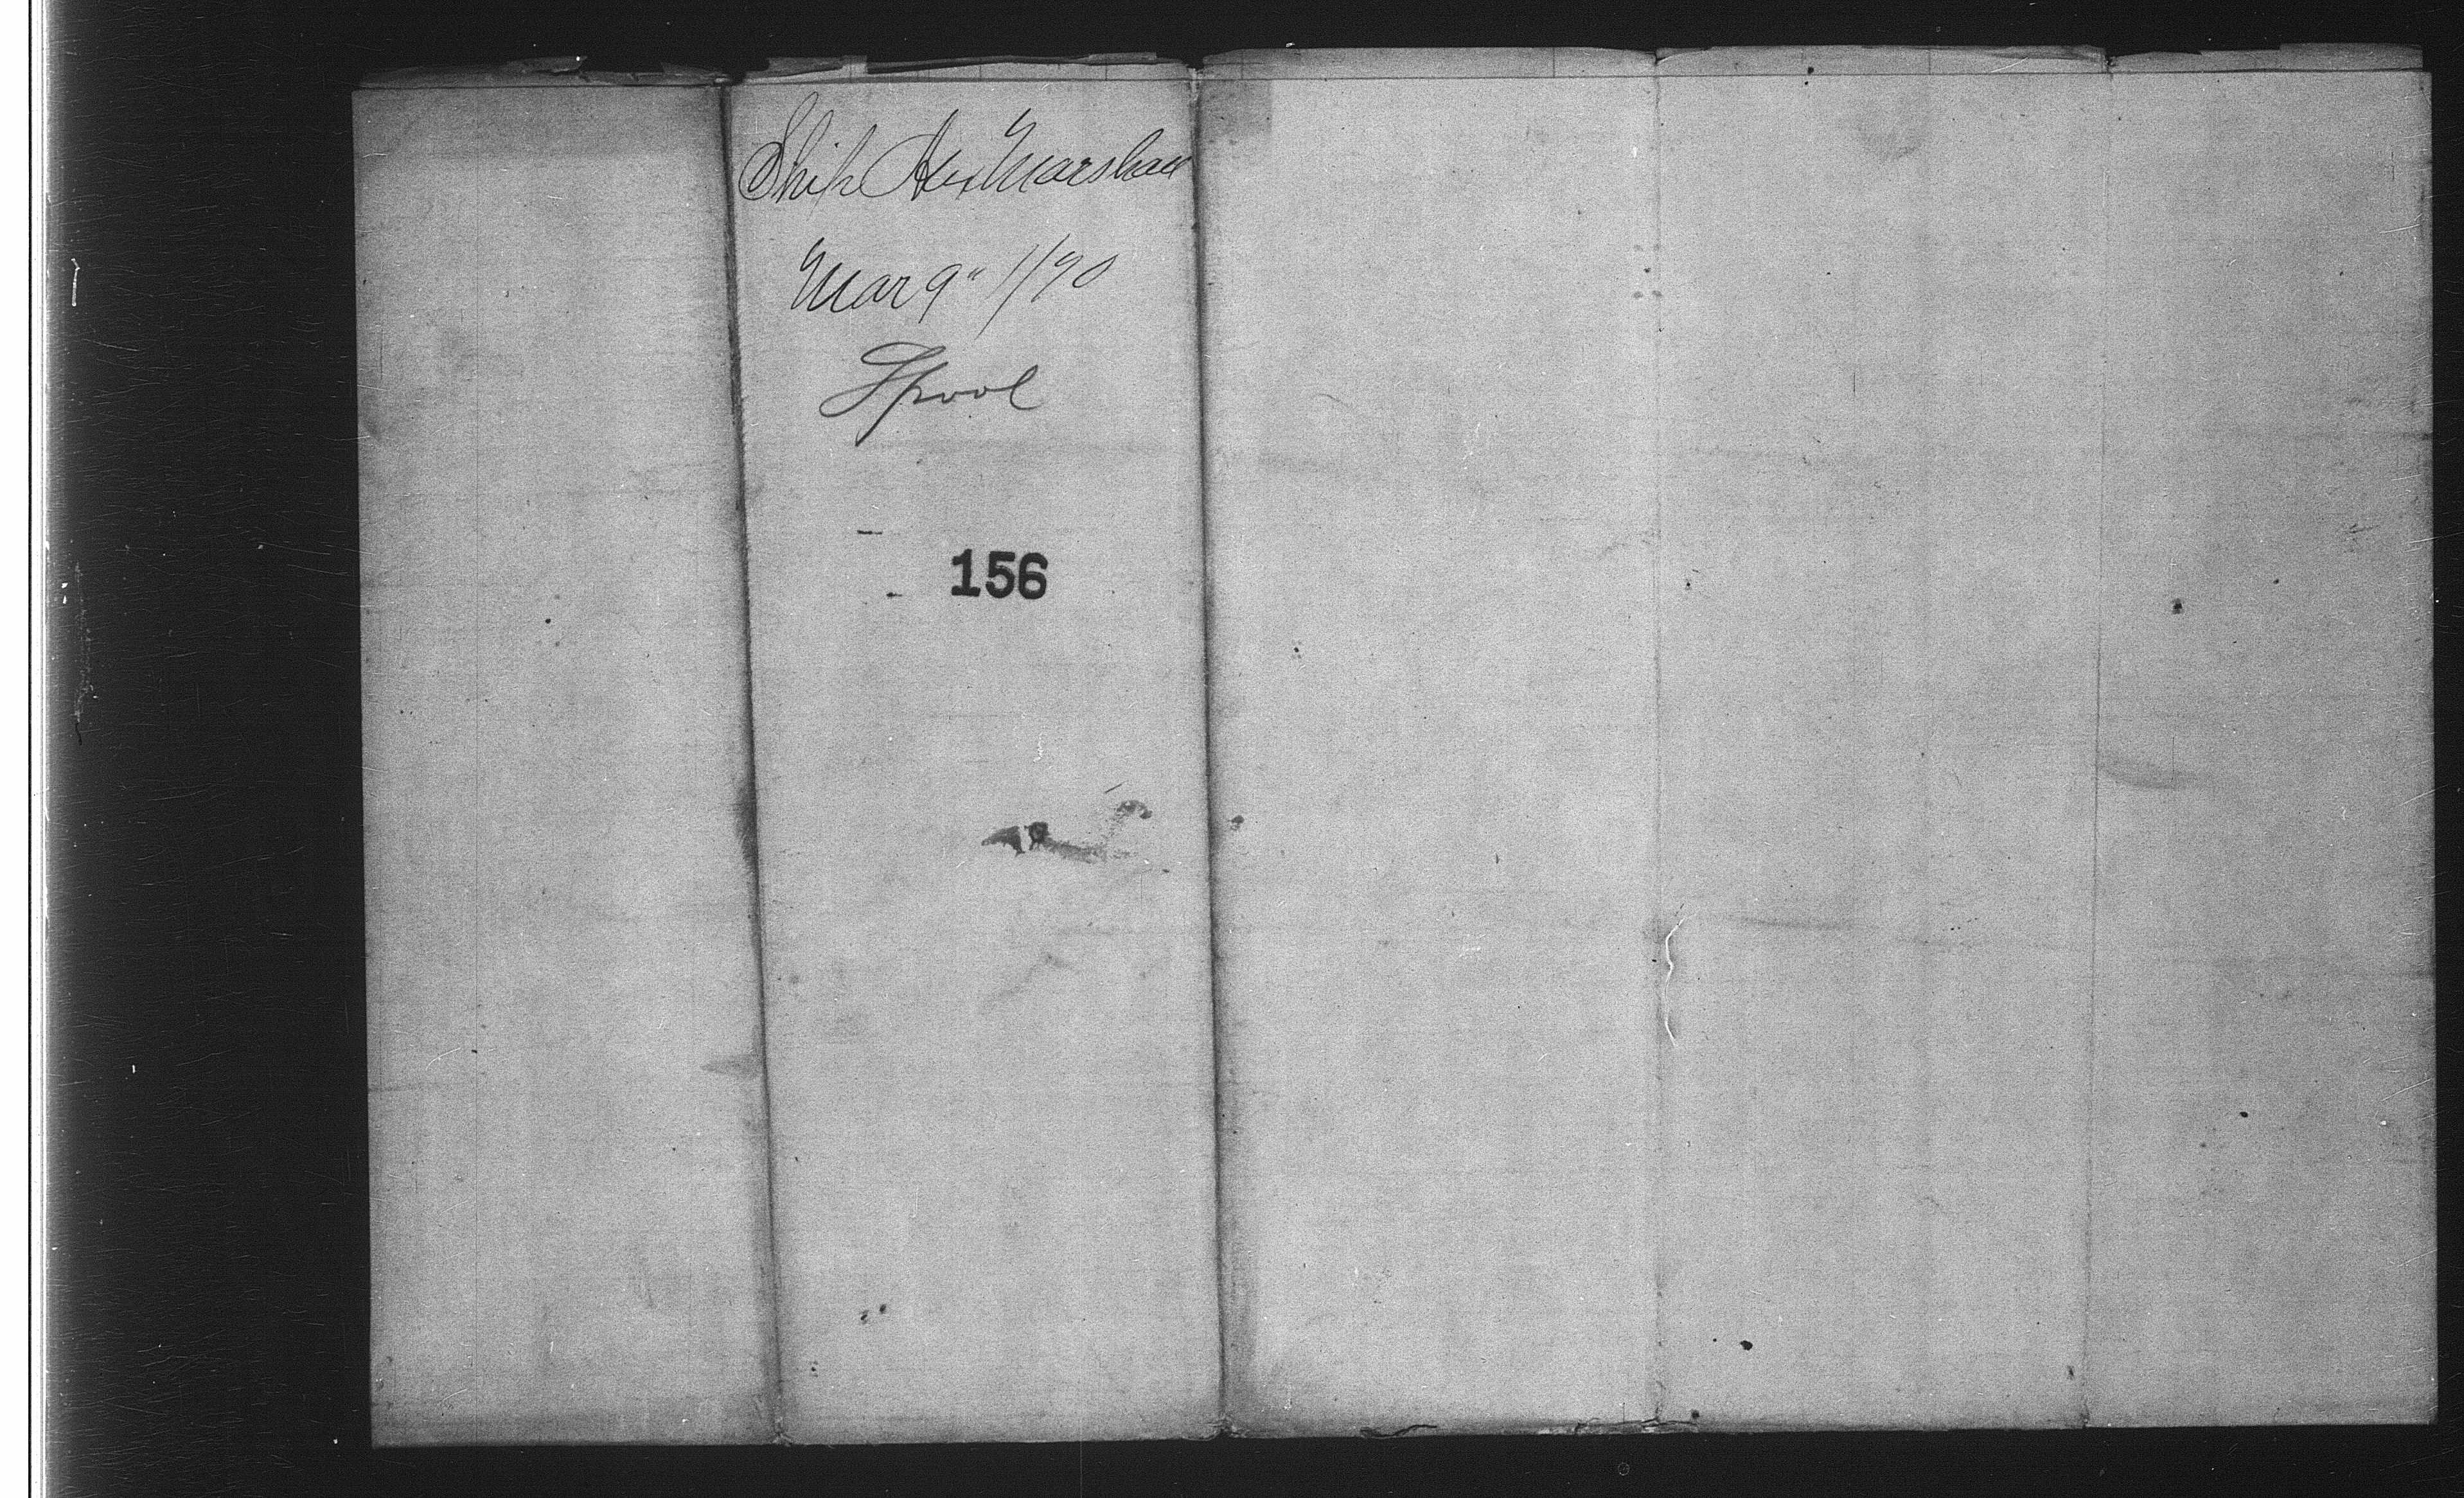 Ship Alex Marshall
Mar 9" 1/70
Lpool
156